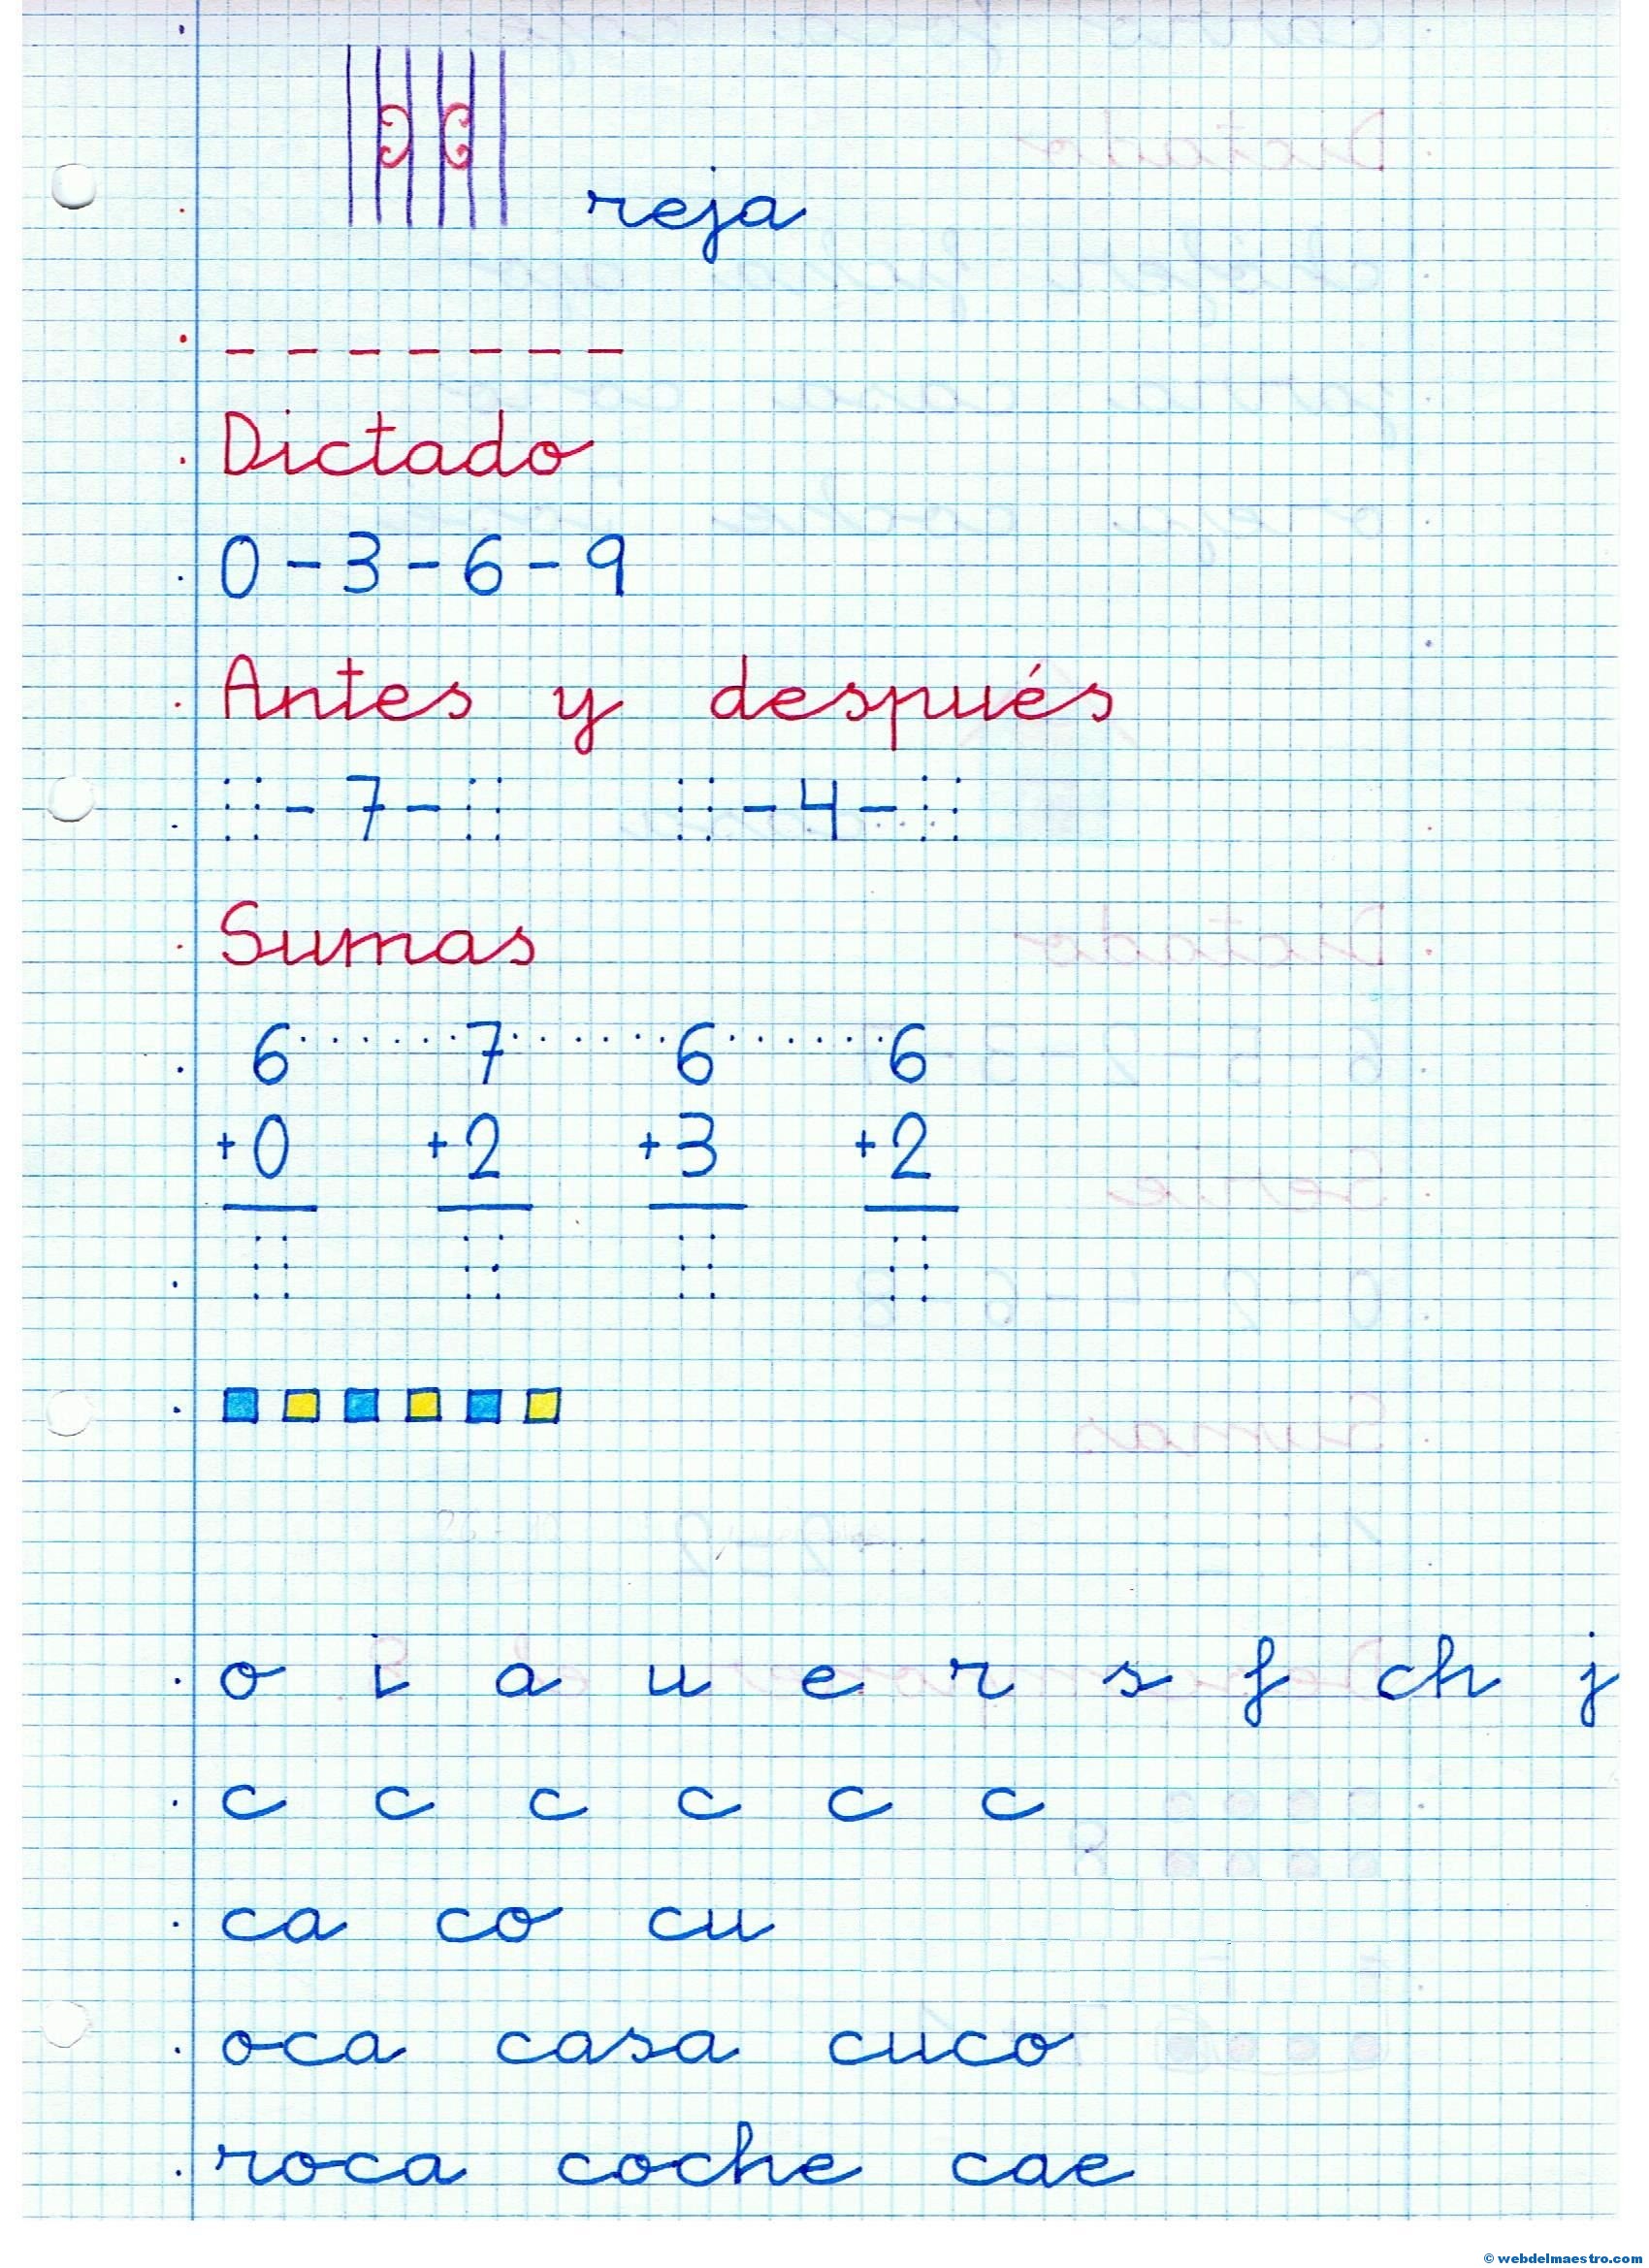 reja
- - - - - - -
Dictado
0 - 3 - 6 - 9
Antes y después
- 7 - - 4 -
Sumas
6 7 6 6
+0 +2 +3 +2
o i a u e r s f ch j
c c c c c c
ca co cu
oca casa cuco
roca coche cae
© webdelmaestro.com